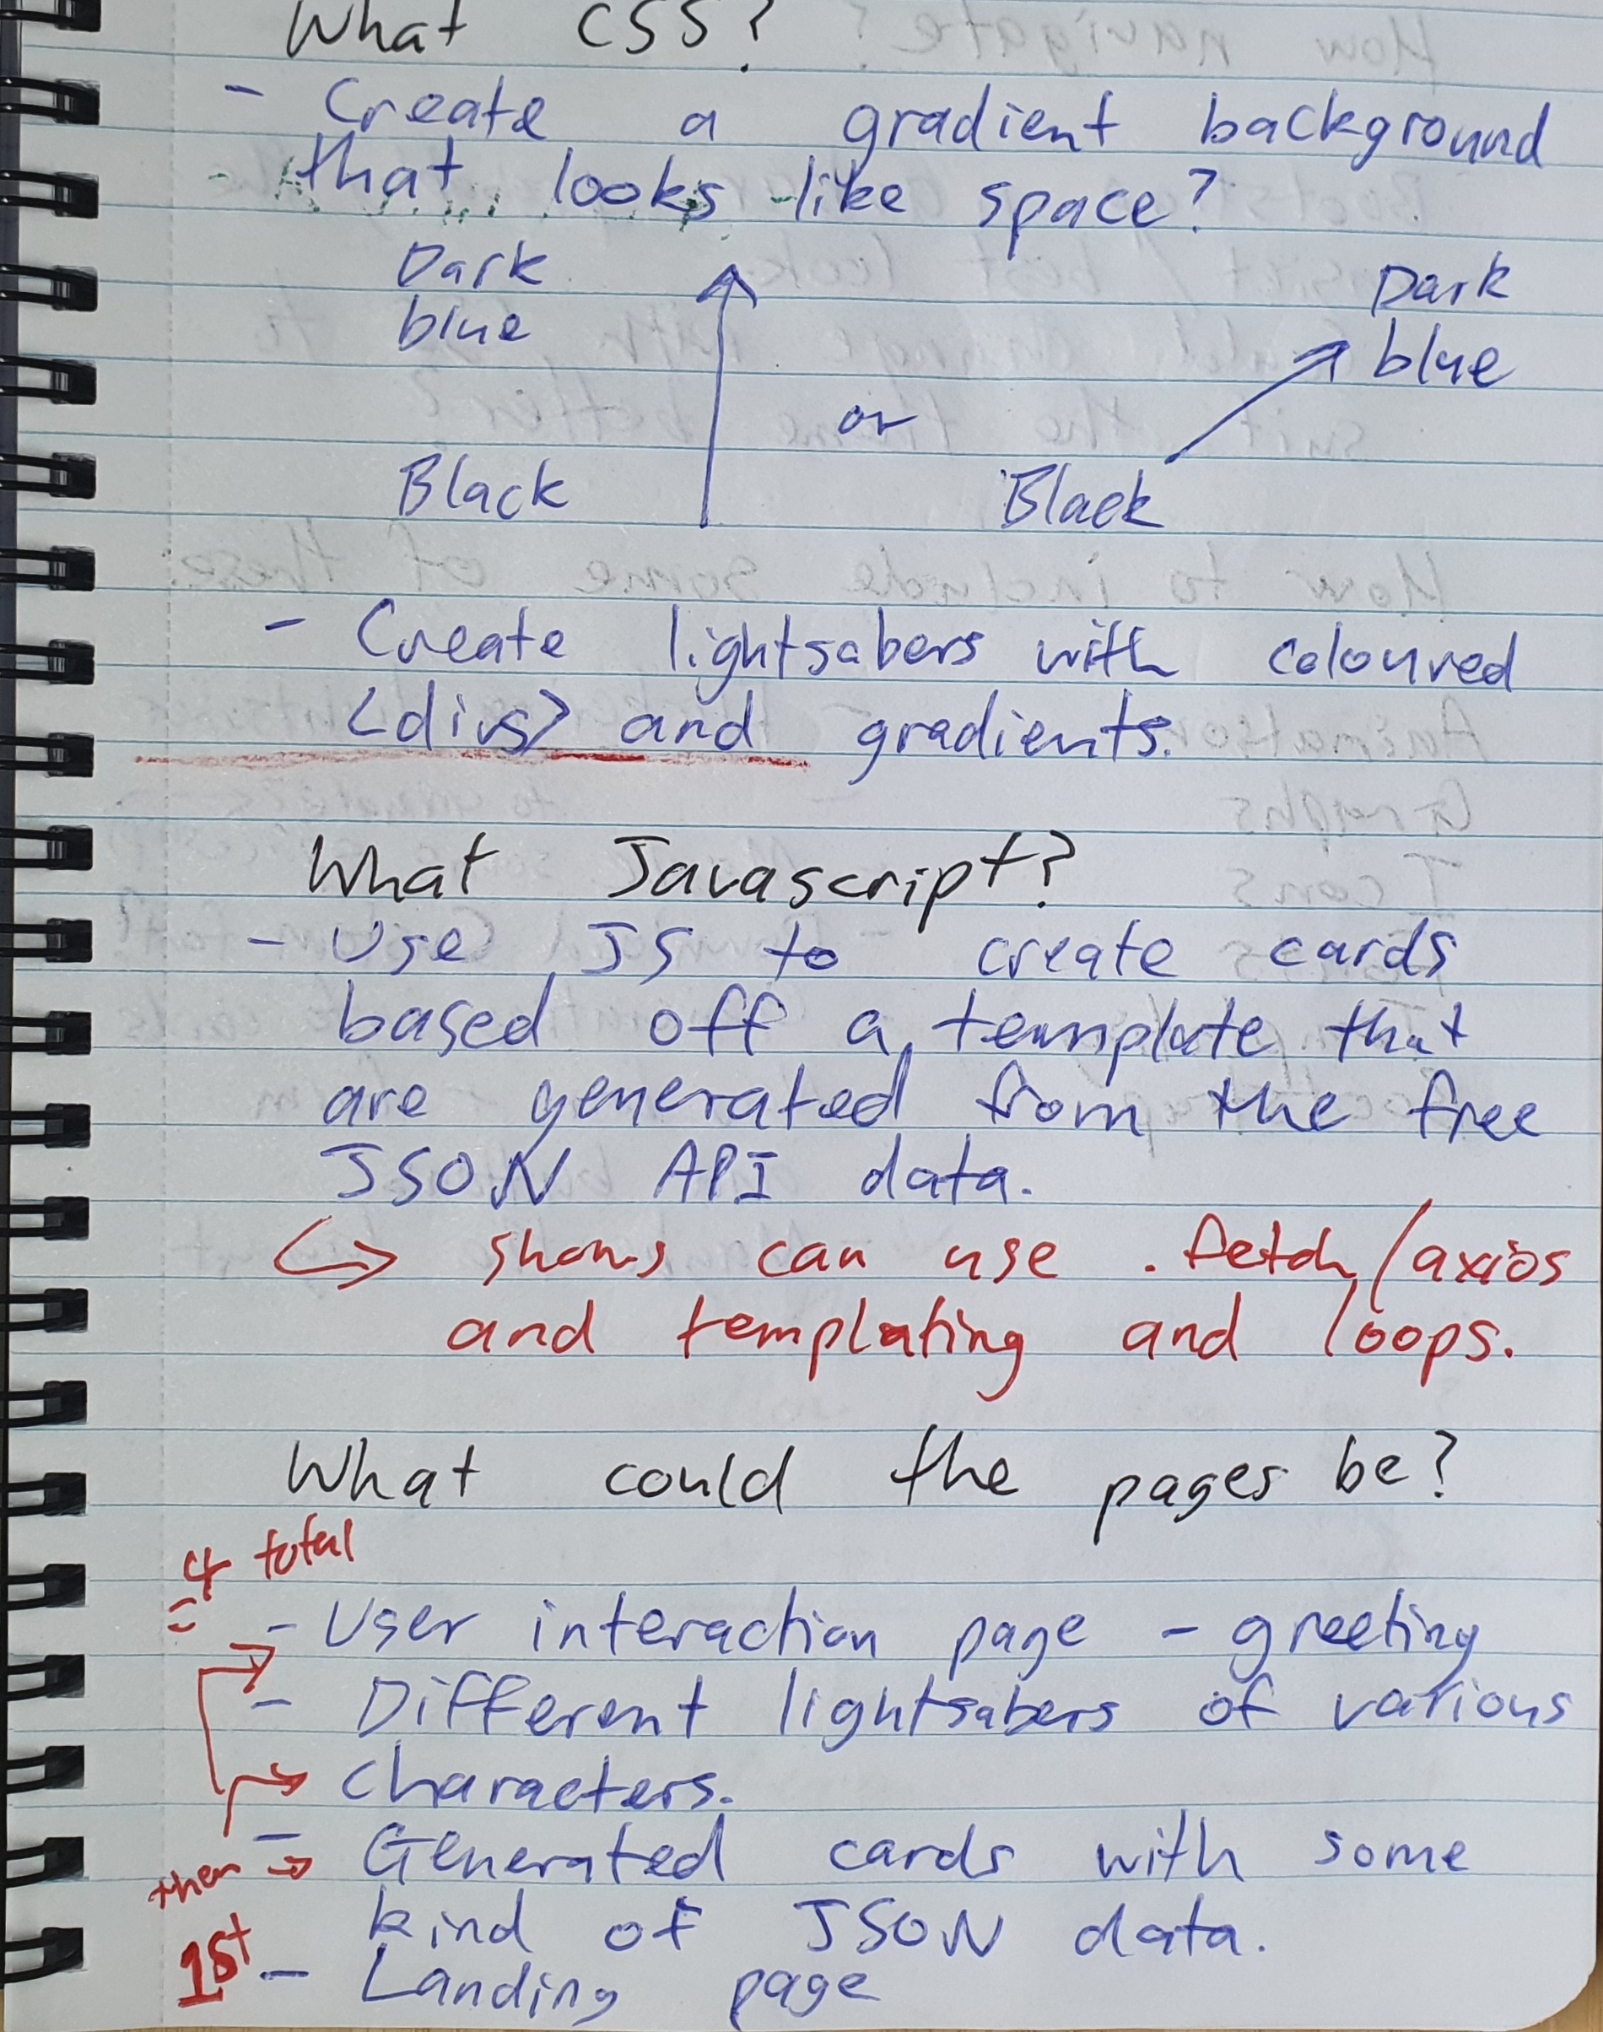 What CSS?
- Create a gradient background
that looks like space?
Dark
blue
Dark
blue
or
Black
Black
- Create lightsabers with coloured
<div> and gradients.
What Javascript?
- Use JS to create cards
based off a template that
are generated from the free
JSON API data.
↳ shows can use fetch/axios
and templating and loops.
What could the pages be?
4 total
- User interaction page - greeting
- Different lightsabers of various
characters.
then → - Generated cards with some
kind of JSON data.
1st - Landing page